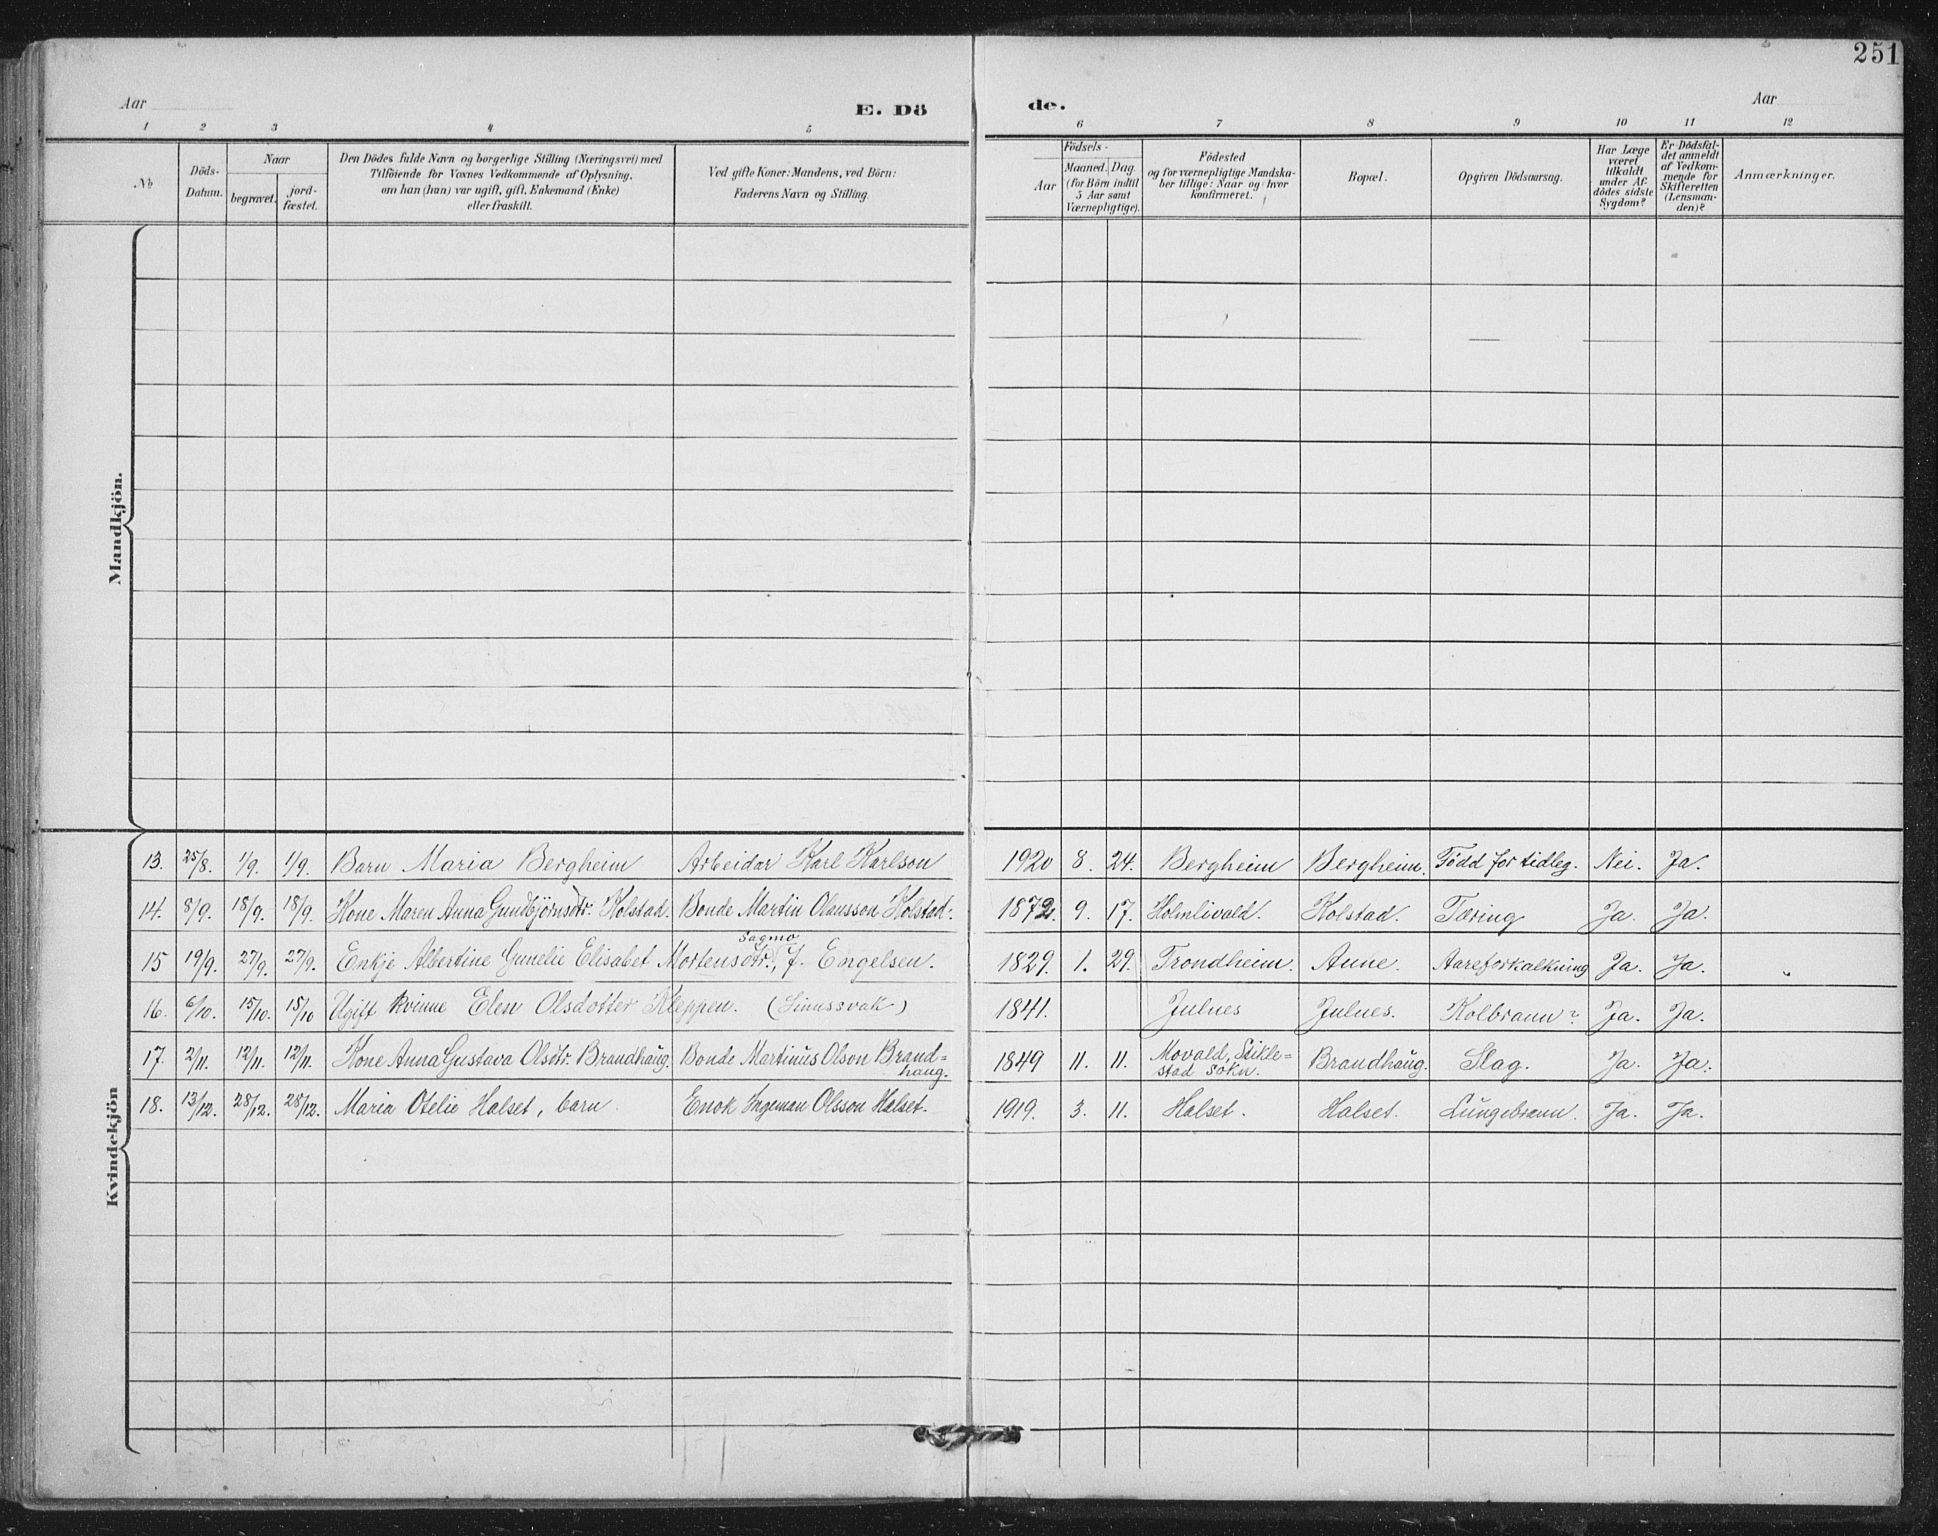 251
Aar
E. Dö
de.
Aar
1 2 3 4 5 6 7 8 9 10 11 12
No
Döds-
Datum.
Naar
begravet.
jord-
fæstet.
Den Dödes fulde Navn og borgerlige Stilling (Næringsvei) med
Tilföiende for Voxnes Vedkommende af Oplysning,
om han (hun) var ugift, gift, Enkemand (Enke)
eller fraskilt.
Ved gifte Koner: Mandens, ved Börn:
Faderens Navn og Stilling.
Födsels-
Aar
Maaned. Dag.
(for Börn indtil
5 Aar samt
Værnepligtige).
Födested
og for værnepligtige Mandska-
ber tillige: Naar og hvor
konfirmeret.
Bopæl.
Opgiven Dödsaarsag.
Har Læge
været
tilkaldt
under Af-
dödes sidste
Sygdom?
Er Dödsfal-
det anmeldt
af Vedkom-
mende for
Skifteretten
(Lensman-
den)?
Anmærkninger.
Mandkjön.
Kvindekjön
13. 25/8. 1/9. 1/9. Barn Maria Bergheim Arbeidar Karl Karlson 1920 8. 24. Bergheim Bergheim. Född for tidleg. Nei. Ja.
14. 8/9. 18/9. 18/9. Kone Maren Anna Gundbjörnsdtr. Kolstad. Bonde Martin Olausson Kolstad. 1872. 9. 17. Holmlivald. Kolstad. Tæring Ja. Ja.
Sagmo
15 19/9. 27/9. 27/9. Enkje Albertine Gunelie Elisabet Mortensdtr., f. Engelsen. 1829. 1. 29. Trondheim. Aune. Aareforkalkning Ja. Ja.
16. 6/10. 15/10. 15/10 Ugift kvinne Elen Olsdotter Kleppen. (Sinnssvak) 1841. Julnes Julnes. Kolbrann? Ja. Ja.
17. 2/11. 12/11. 12/11. Kone Anna Gustava Olsdtr. Brandhaug. Bonde Martinus Olson Brand-
haug. 1849 11. 11. Movald, Stikle-
stad sokn. Brandhaug. Slag. Ja. Ja.
18. 13/12. 28/12. 28/12. Maria Otelie Halset, barn. Enok Ingeman Olsson Halset. 1919. 3. 11. Halset. Halset. Lungebrann. Ja. Ja.